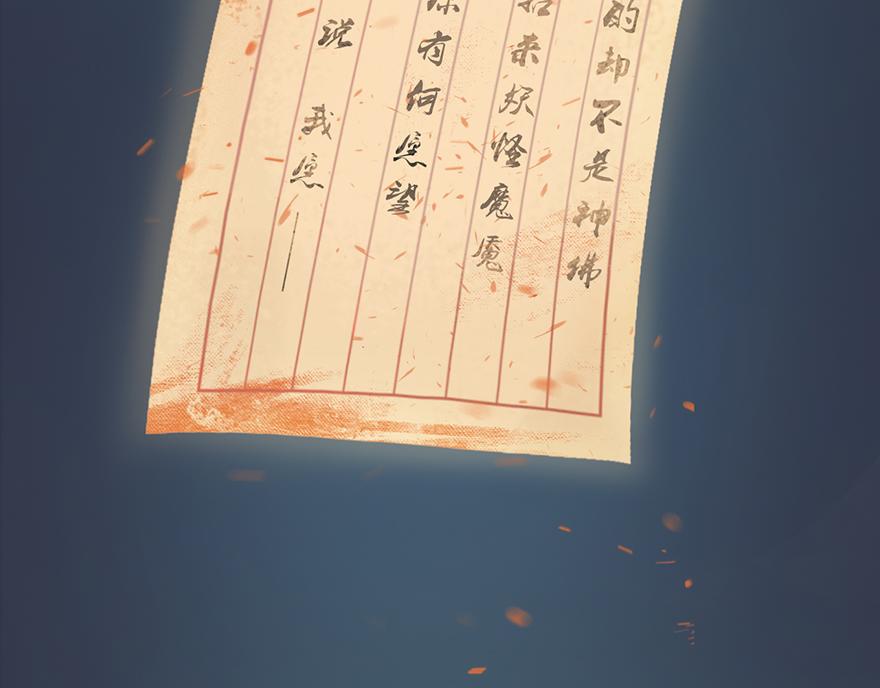 的却不是神佛
招来妖怪魔魇
你有何愿望
说 我愿——